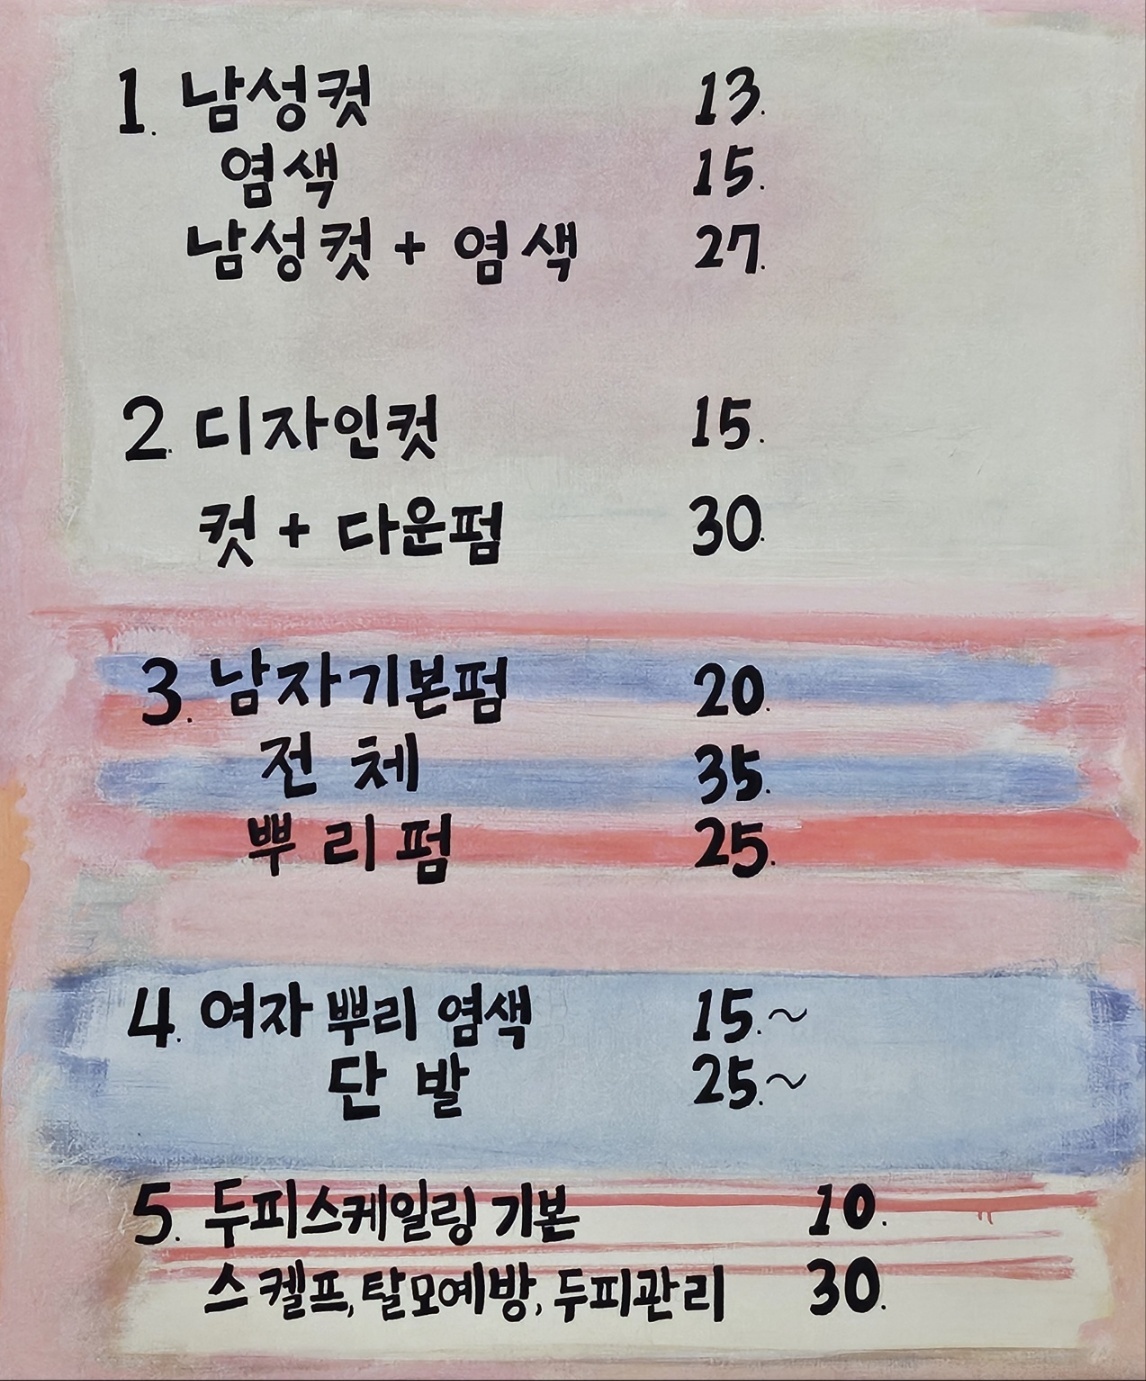 1. 남성컷 13.
염색 15.
남성컷 + 염색 27.
2. 디자인컷 15.
컷 + 다운펌 30.
3. 남자기본펌 20.
전 체 35.
뿌리펌 25.
4. 여자 뿌리 염색 15.~
단 발 25.~
5. 두피스케일링 기본 10.
스켈프, 탈모예방, 두피관리 30.